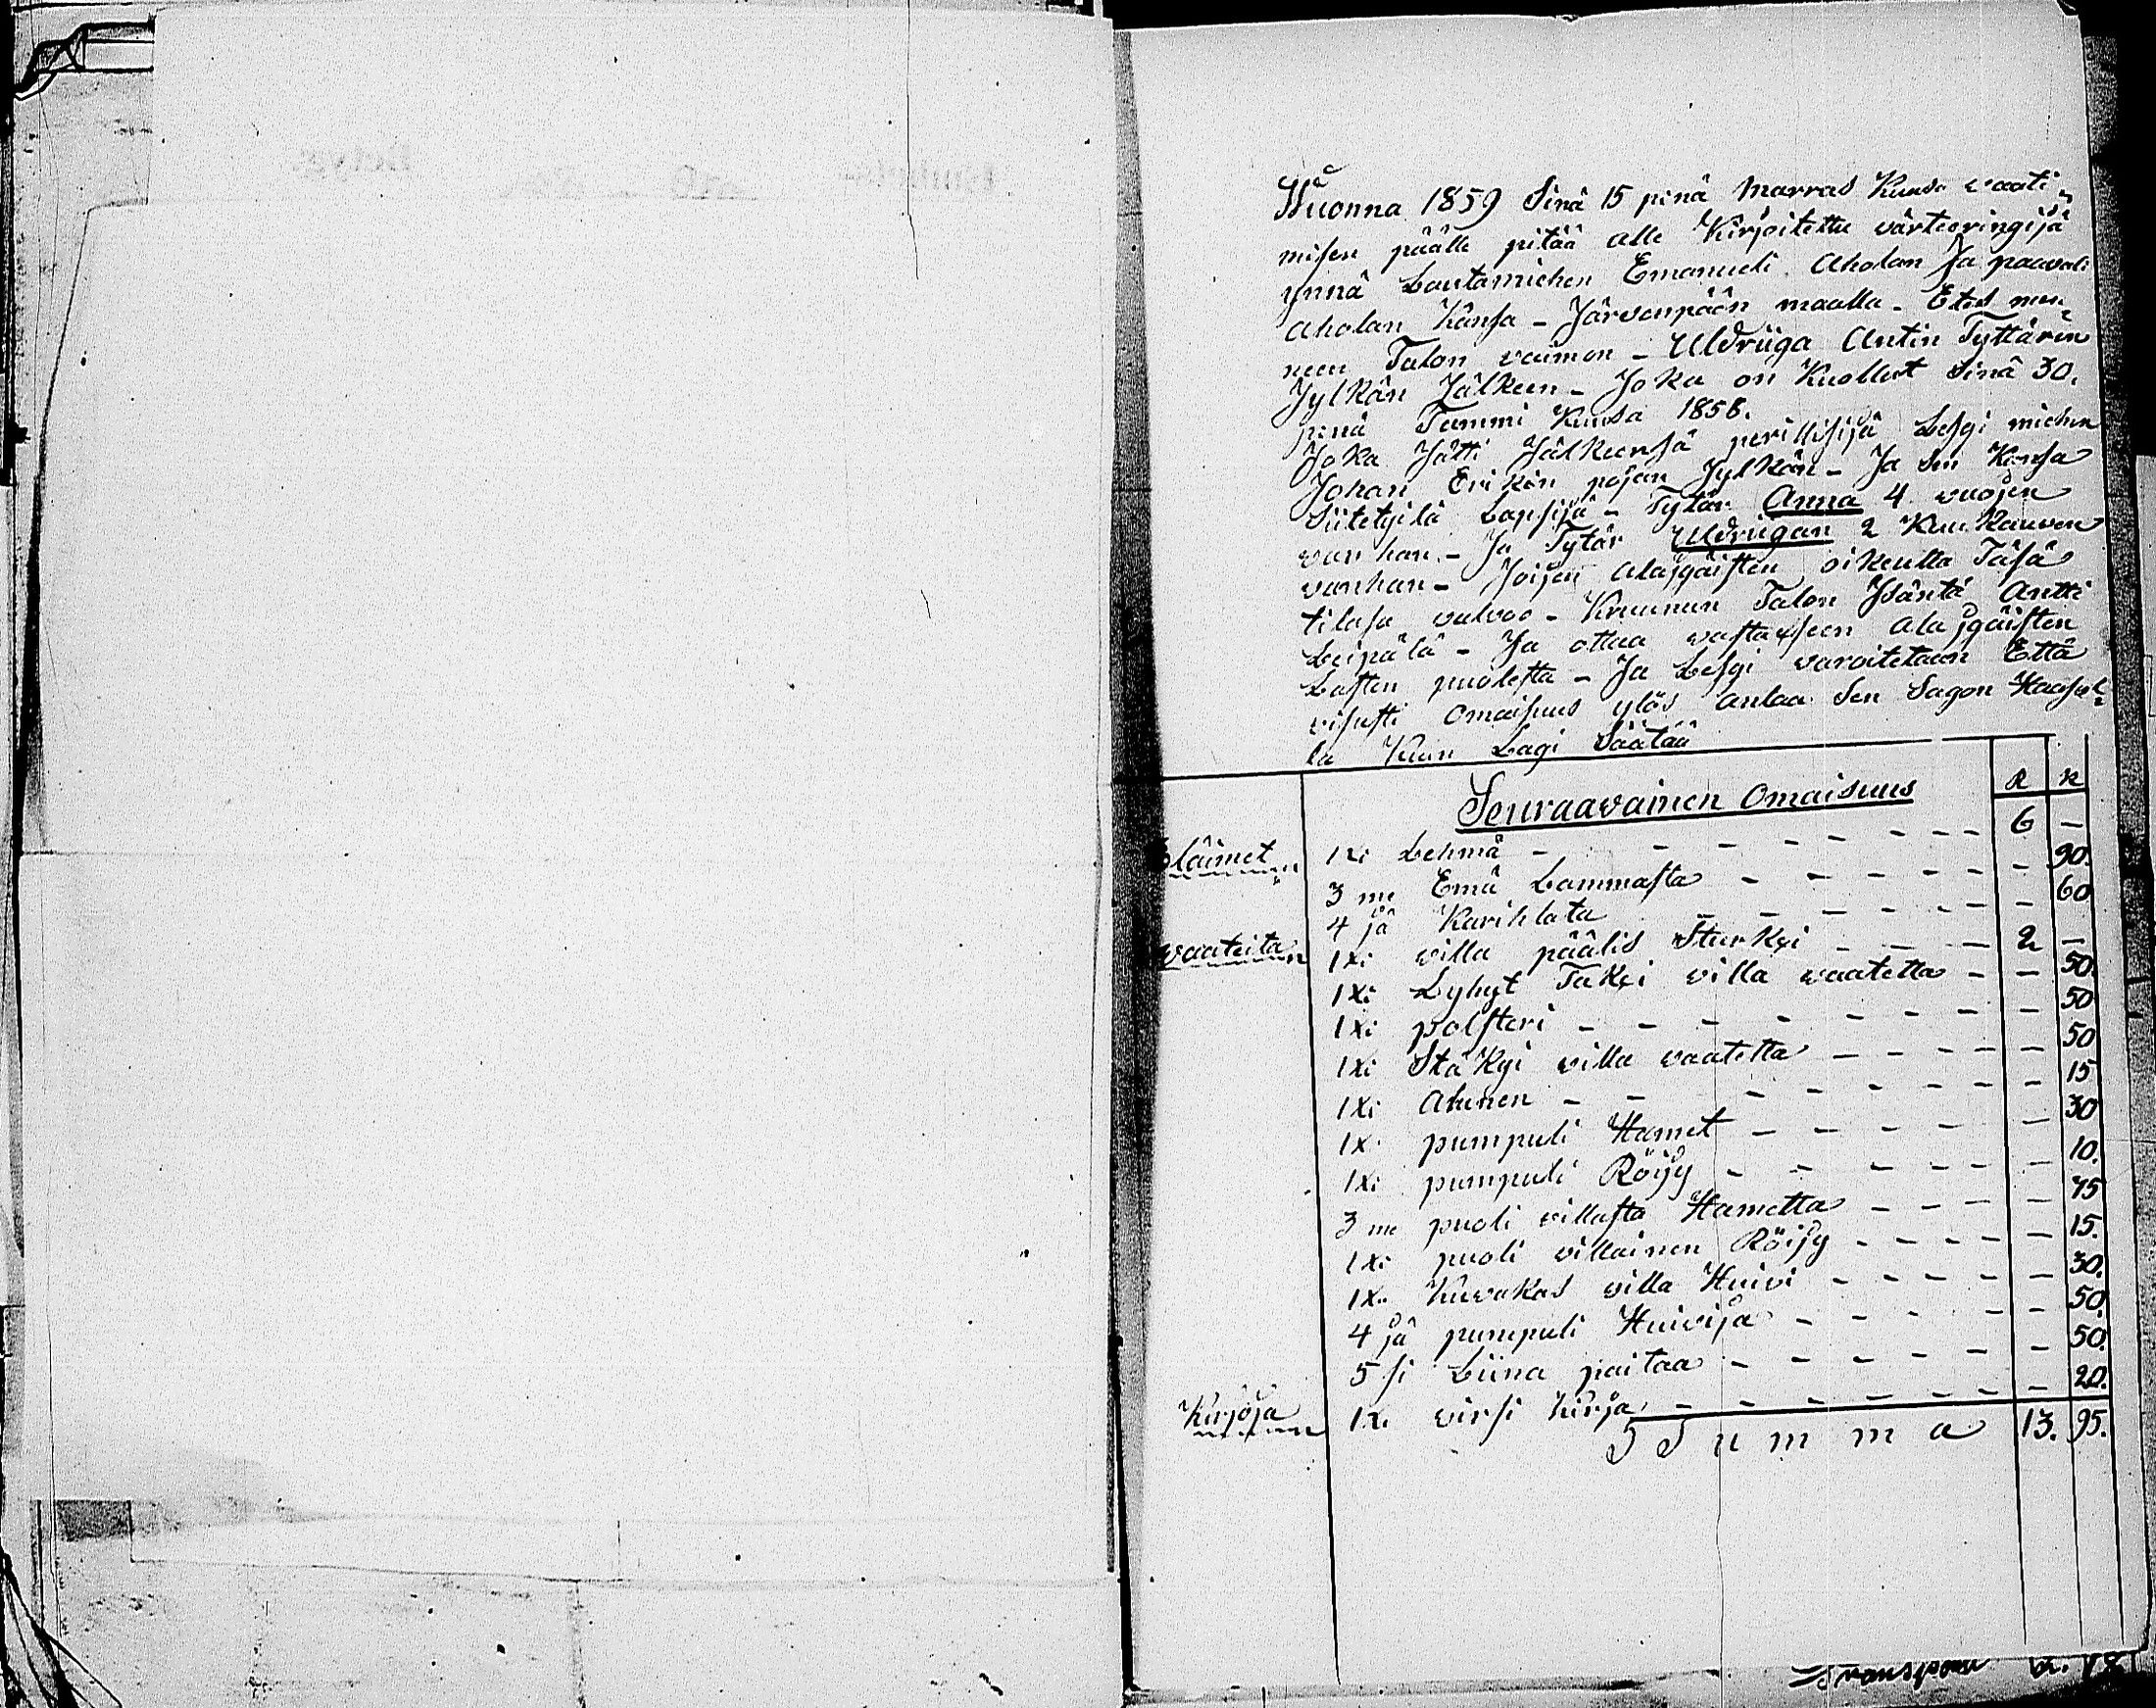 Wuonna 1859 Sinä 15 pinä Marras Kuusa vaati-
misen päälle pitää alle Kirjoitettu värteeringijä
ynnä Lautamiehen Emanueli Aholan Ja paavali
Aholan Kansa - Järvenpään maalla - Etes men-
neen Talon vaimon - Uldriiga Antin Tyttären
Jylkän Jälkeen - Joka on Kuollut Sinä 30.
pinä Tammi Kuusa 1858.
Joka Jätti Jälkeensä perillisijä Lesgi miehen
Johan Erikin pojan Jylkän - Ja Sen Kansa
Siitetyilä Lapsija - Tytär Anna 4 vuojen
vanhan - Ja Tytär Uldriigan 2 Kuukauven
vanhan - Joijen Alajgäisten oikeutta Täsä
tilasa valvoo - Kruunun Talon Isäntä Antti
Leipälä - Ja ottaa vastaxseen alajgäisten
Lasten puolesta - Ja Lesgi varoitetaan Että
visusti Omaisuus ylös antaa Sen Sagon Haasol-
la Kuin Lagi Säätää
Seuraavainen Omaisuus R K
Eläimet 1xi Lehmä - - - - - - - 6 -
3 me Emä Lammasta - - - - - - 90.
4 jä Karihlata - - - - - - 60
vaateita 1xi villa päälis Sturkyi - - - 2 -
1xi Lyhyt Takyi villa vaatetta - - 50.
1xi polsteri - - - - - - - - 50
1xi Stäkyi villa vaatetta - - - - - 50
1xi Aluinen - - - - - - - - 15
1xi pumpuli Hamet - - - - - - 30
1xi pumpuli Röijy - - - - - - 10.
3 me puoli villasta Hametta - - - - 75
1xi puoli villainen Röijy - - - - - 15.
1xi Kuvakas villa Huivi - - - - - 30.
4 jä pumpuli Huivija - - - - - 50.
5 si Liina paitaa - - - - - - 50.
Kirjoja 1xi virsi kirja - - - - - - - 20.
S Summa 13. 95.
Transport